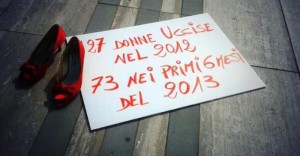 27 DONNE UCCISE
NEL 2012
73 NEI PRIMI 6 MESI
DEL 2013